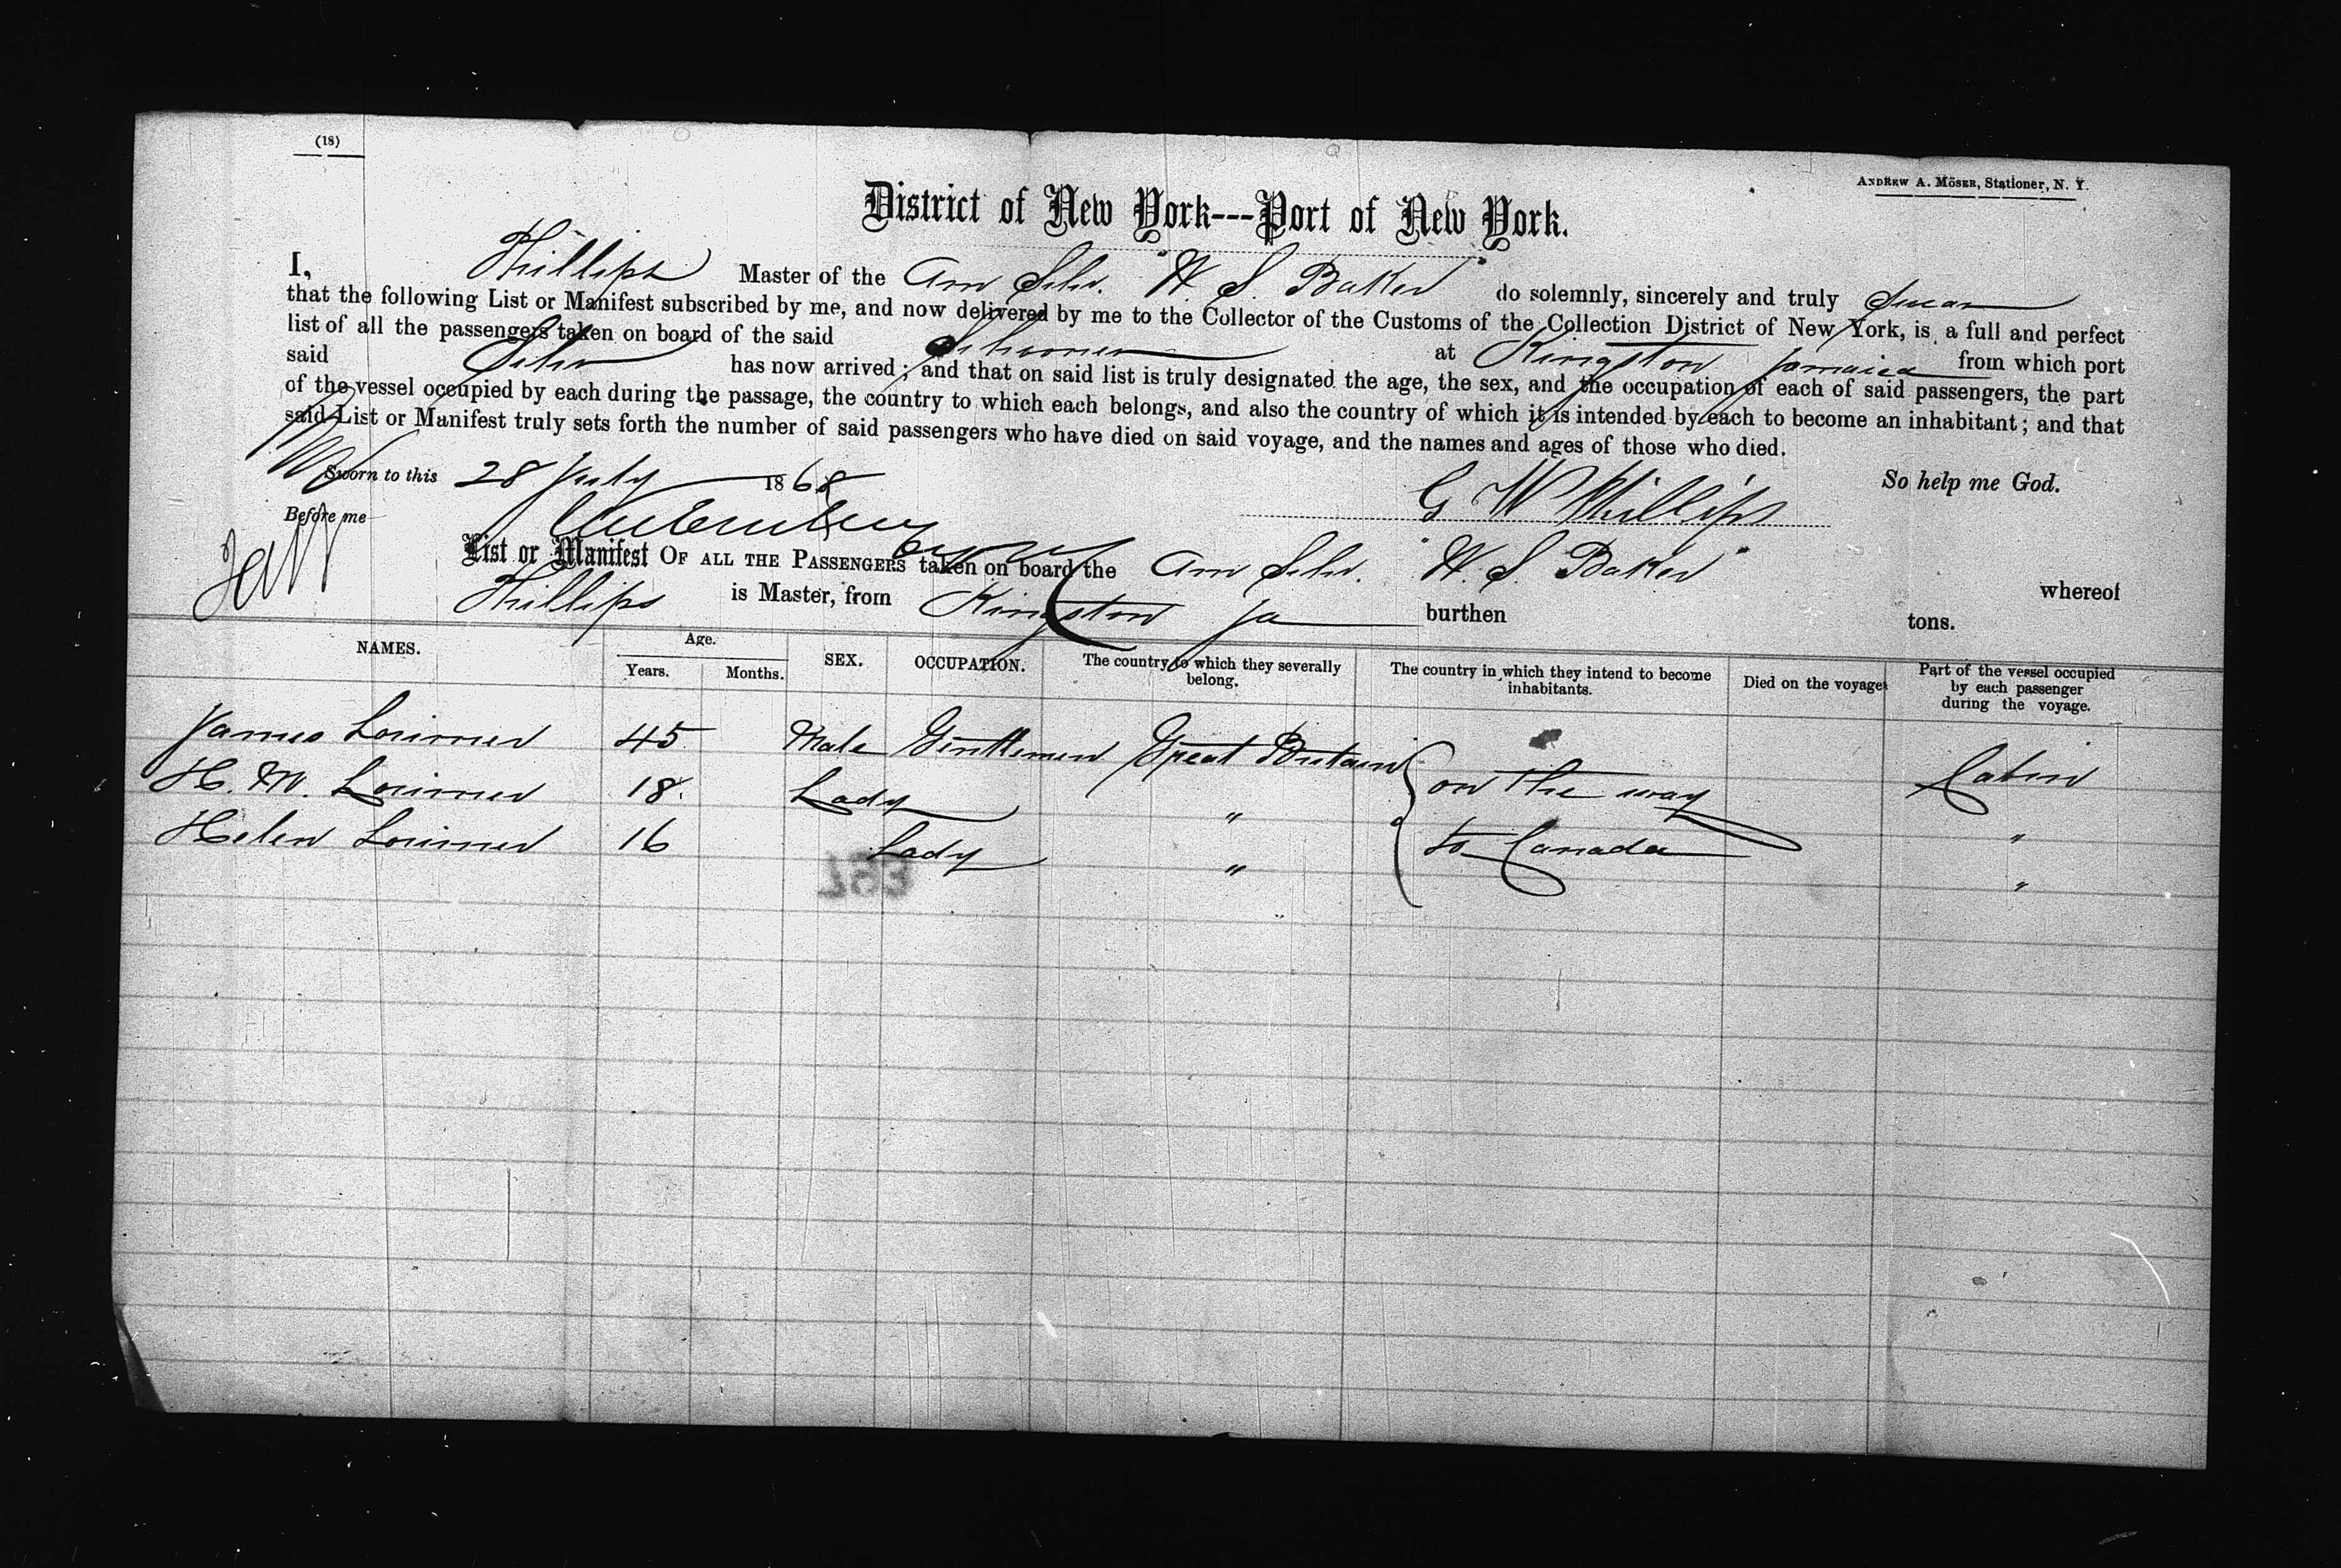 (18)
ANDREW A. MÖSER, Stationer, N. Y.
District of New York---Port of New York.
I, Phillips Master of the Am Schr. "W. S. Baker" do solemnly, sincerely and truly Swear
that the following List or Manifest subscribed by me, and now delivered by me to the Collector of the Customs of the Collection District of New York, is a full and perfect
list of all the passengers taken on board of the said Schooner at Kingston Jamaica from which port
said Schr has now arrived; and that on said list is truly designated the age, the sex, and the occupation of each of said passengers, the part
of the vessel occupied by each during the passage, the country to which each belongs, and also the country of which it is intended by each to become an inhabitant; and that
said List or Manifest truly sets forth the number of said passengers who have died on said voyage, and the names and ages of those who died.
Sworn to this 28 July 1868 So help me God.
Before me G W Phillips
List or Manifest OF ALL THE PASSENGERS taken on board the Am Schr. "W. S. Baker" whereof
Phillips is Master, from Kingston Ja burthen tons.
NAMES. Age. Years. Months. SEX. OCCUPATION. The country to which they severally belong. The country in which they intend to become inhabitants. Died on the voyage Part of the vessel occupied by each passenger during the voyage.
James Lorimer 45 Male Gentlemen Great Britain Cabin
H. M. Lorimer 18. Lady " on the way "
Helen Lorimer 16 Lady " to Canada "
793